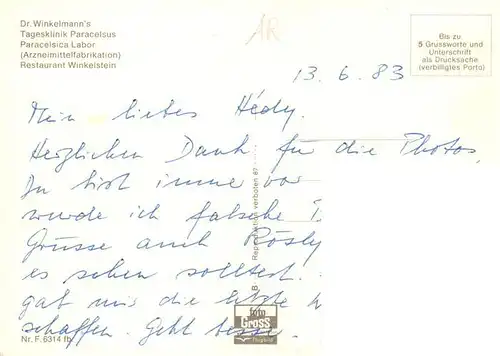 Dr. Winkelmann's
Tagesklinik Paracelsus
Paracelsica Labor
(Arzneimittelfabrikation)
Restaurant Winkelstein
AR
Bis zu
5 Grussworte und
Unterschrift
als Drucksache
(verbilligtes Porto)
13. 6. 83
Mein liebes Hédy.
Herzlichen Dank für die Photos,
Du bist imme vor
wurde ich falsche
Grüsse auch Rösly
es sehen solltest.
gab mis die letzte
schaffen. Geht besse.
Reproduktion verboten 87
foto
Gross
Nr. F. 6314 fb